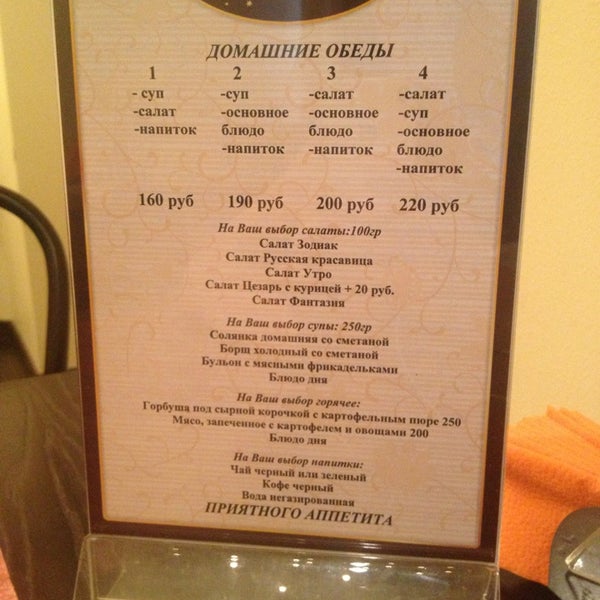 ДОМАШНИЕ ОБЕДЫ
1 2 3 4
- суп -суп -салат -салат
-салат -основное -основное -суп
-напиток блюдо блюдо -основное
-напиток -напиток блюдо
-напиток
160 руб 190 руб 200 руб 220 руб
На Ваш выбор салаты:100гр
Салат Зодиак
Салат Русская красавица
Салат Утро
Салат Цезарь с курицей + 20 руб.
Салат Фантазия
На Ваш выбор супы: 250гр
Солянка домашняя со сметаной
Борщ холодный со сметаной
Бульон с мясными фрикадельками
Блюдо дня
На Ваш выбор горячее:
Горбуша под сырной корочкой с картофельным пюре 250
Мясо, запеченное с картофелем и овощами 200
Блюдо дня
На Ваш выбор напитки:
Чай черный или зеленый
Кофе черный
Вода негазированная
ПРИЯТНОГО АППЕТИТА